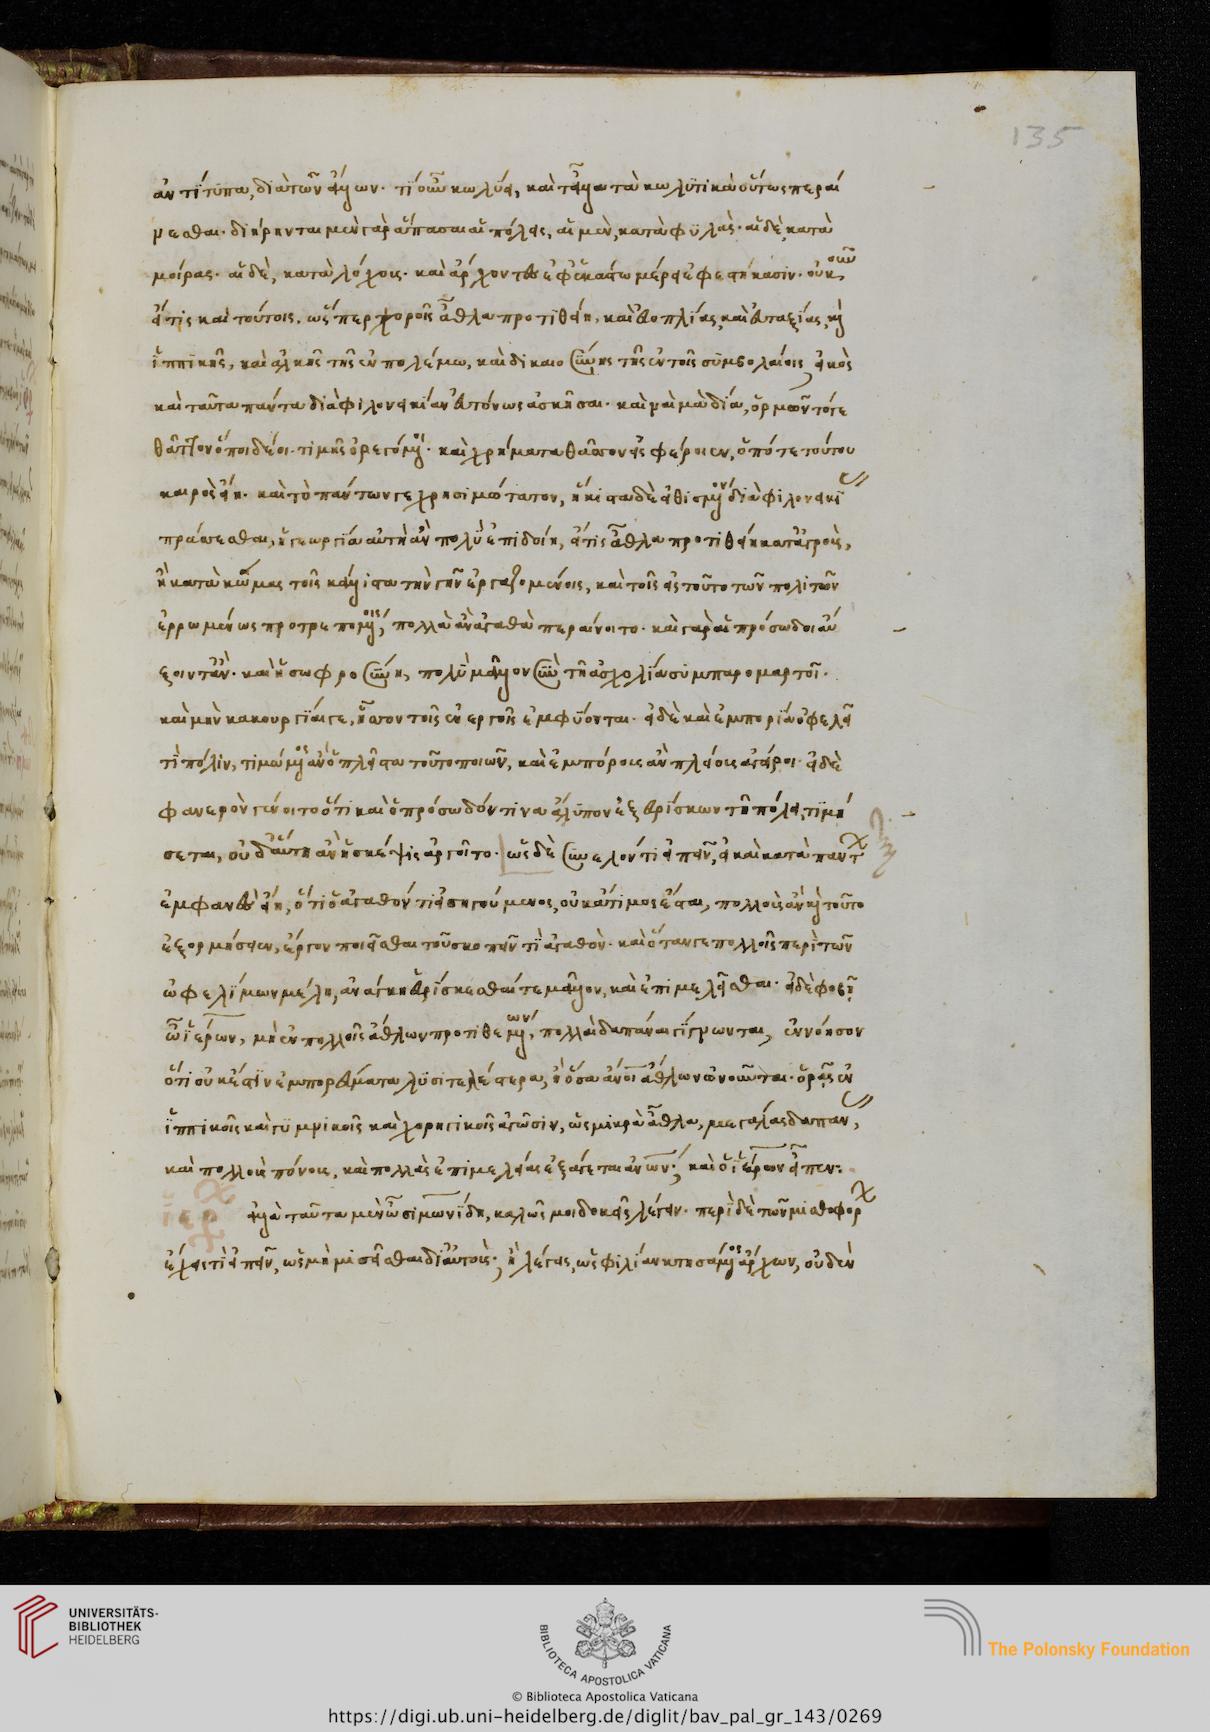 ἀντίτυπα, διὰ τῶν ἄλλων· τί οὖν κωλύει, καὶ τἆλλα τὰ κωλυτικὰ οὕτως περαί
νεσθαι· διήρηνται μὲν γὰρ ἅπασαι αἱ πόλεις, αἱ μὲν, κατὰ φυλάς· αἱ δὲ, κατὰ
μοίρας· αἱ δὲ, κατὰ λόχους· καὶ ἄρχοντες ἐφ' ἑκάστω μέρει ἐφεστήκασιν· οὐκοῦν
εἴ τις καὶ τούτοις, ὥσπερ χοροῖς ἆθλα προτιθείη, καὶ εὐοπλίας, καὶ εὐταξίας, καὶ
ἱππικῆς, καὶ ἀλκῆς τῆς ἐν πολέμω, καὶ δικαιοσύνης τῆς ἐν τοῖς συμβολαίοις, εἰκὸς
καὶ ταῦτα πάντα διὰ φιλονεικίαν εὐτόνως ἀσκῆσαι· καὶ ναὶ μὰ δία, ὁρμῶντό τε
θᾶττον ὅποι δέοι· τιμῆς ὀρεγόμενοι· καὶ χρήματα θᾶσσον εἰσφέροιεν, ὁπότε τούτου
καιρὸς εἴη· καὶ τὸ πάντων γε χρησιμώτατον, ἥκιστα δὲ εἰθισμένον διὰ φιλονεικί
πράσσεσθαι, ἡ γεωργία αὐτὴ ἂν πολὺ ἐπιδοίη, εἴ τις ἆθλα προτιθείη κατ' ἀγροὺς,
ἢ κατὰ κώμας τοῖς κάλλιστα τὴν γῆν ἐργαζομένοις, καὶ τοῖς εἰς τοῦτο τῶν πολιτῶν
ἐρρωμένως προτρεπομένοις, πολλὰ ἂν ἀγαθὰ περαίνοιτο· καὶ γὰρ αἱ πρόσωδοι αὔ
ξοιντ' ἄν· καὶ ἡ σωφροσύνη, πολὺ μᾶλλον σὺν τῆ ἀσχολία συμπαρομαρτοῖ·
καὶ μὴν κακουργίαι γε, ἧσσον τοῖς ἐνεργοῖς ἐμφύονται· εἰ δὲ καὶ ἐμπορία ὀφελεῖ
τὶ πόλιν, τιμώμενος ἂν ὁ πλεῖστα τοῦτο ποιῶν, καὶ ἐμπόρους ἂν πλείους ἀγείροι· εἰ δὲ
φανερὸν γένοιτο ὅτι καὶ ὁ πρόσωδόν τινα ἄλυπον ἐξευρίσκων τῆ πόλει, τιμή
σεται, οὐδ' αὕτη ἂν ἡ σκέψις ἀργοῖτο· ὡς δὲ συνελόντι εἰπεῖν, εἰ καὶ κατὰ πάντ
ἐμφανὲς εἴη, ὅτι ὁ ἀγαθόν τι εἰσηγούμενος, οὐκ ἄτιμος ἔσται, πολλοὺς ἂν καὶ τοῦτο
ἐξορμήσειεν, ἔργον ποιεῖσθαι τοῦ σκοπεῖν τὶ ἀγαθόν· καὶ ὅταν γε πολλοῖς περὶ τῶν
ὠφελίμων μέλη, ἀνάγκη εὑρίσκεσθαί τε μᾶλλον, καὶ ἐπιμελεῖσθαι· εἰ δὲ φοβῆ
ὦ ἱέρων, μὴ ἐν πολλοῖς ἄθλων προτιθεμένων, πολλαὶ δαπάναι γίγνωνται, ἐννόησον
ὅτι οὐκ ἔστιν ἐμπορεύματα λυσιτελέστερα, ἢ ὅσα ἄνοι ἄθλων ὠνοῦνται· ὁρᾶς ἐν
ἱππικοῖς καὶ γυμνικοῖς καὶ χορηγικοῖς ἀγῶσιν, ὡς μικρὰ ἆθλα, μεγάλας δαπάν,
καὶ πολλοὺς πόνους, καὶ πολλὰς ἐπιμελείας ἐξάγεται ἀνων· καὶ ὁ ἱέρων εἶπεν:
ἀλλὰ ταῦτα μὲν ὦ σιμωνίδη, καλῶς μοι δοκεῖς λέγειν· περὶ δὲ τῶν μισθοφόρ
ἔχεις τὶ εἰπεῖν, ὡς μὴ μισεῖσθαι δι' αὐτούς· ἢ λέγεις, ὡς φιλίαν κτησάμενος ἄρχων, οὐδὲν
135
UNIVERSITÄTS-
BIBLIOTHEK
HEIDELBERG
BIBLIOTECA APOSTOLICA VATICANA
The Polonsky Foundation
© Biblioteca Apostolica Vaticana
https://digi.ub.uni-heidelberg.de/diglit/bav_pal_gr_143/0269